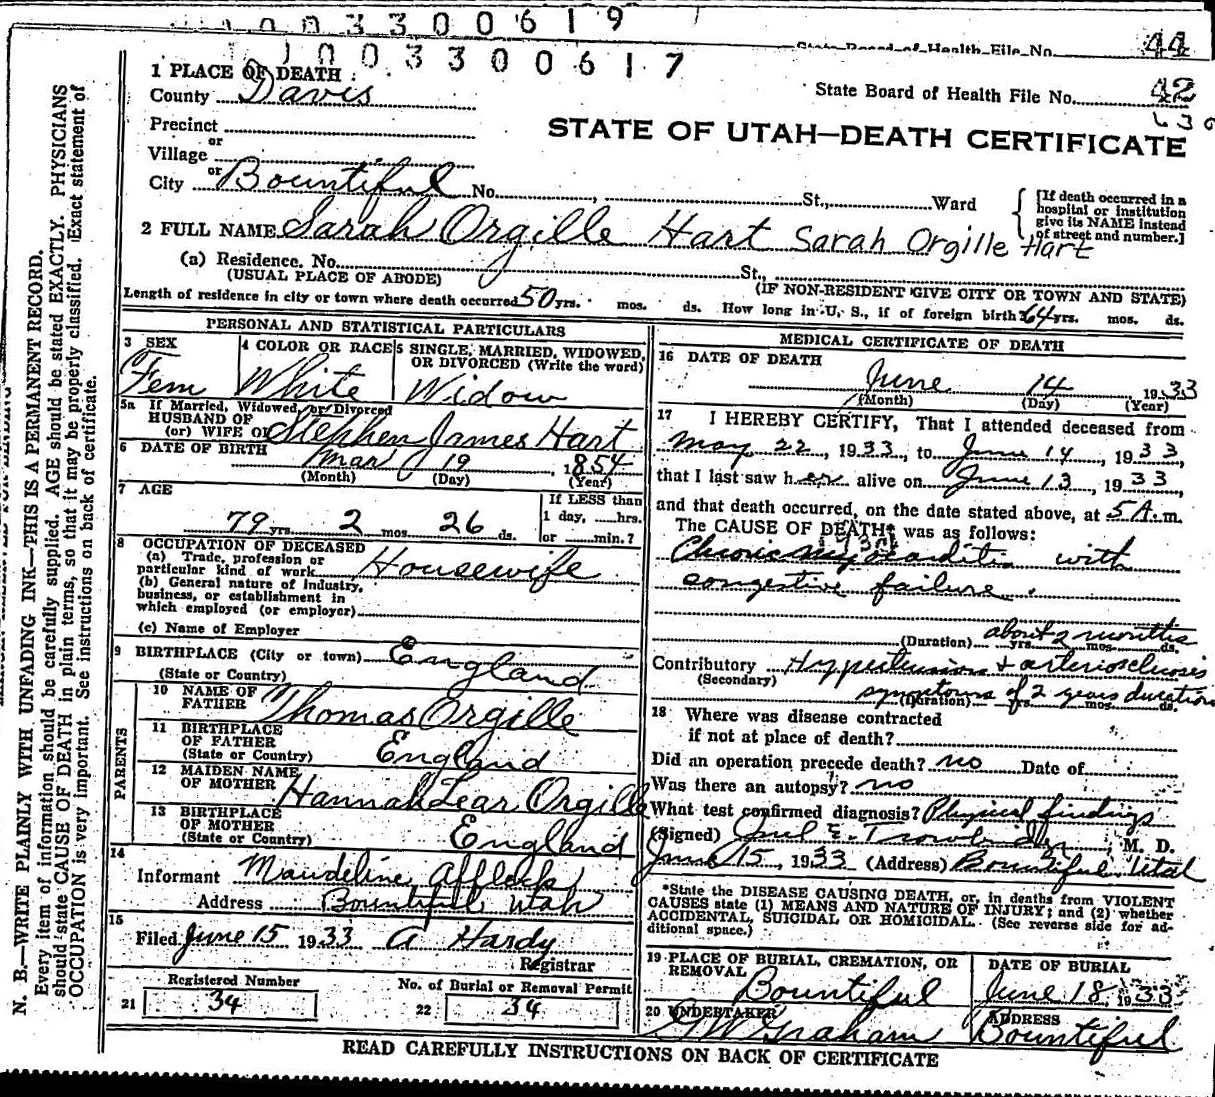 1 0 0 3 3 0 0 6 1 9
State Board of Health File No. 44
1 0 0 3 3 0 0 6 1 7
1 PLACE OF DEATH
County Davis
State Board of Health File No. 42
630
Precinct
or
Village
or
City Bountiful No. St., Ward
STATE OF UTAH—DEATH CERTIFICATE
[If death occurred in a
hospital or institution
give its NAME instead
of street and number.]
2 FULL NAME Sarah Orgille Hart Sarah Orgille Hart
(a) Residence. No. St.,
(USUAL PLACE OF ABODE) (IF NON-RESIDENT GIVE CITY OR TOWN AND STATE)
Length of residence in city or town where death occurred 50 yrs. mos. ds. How long in U. S., if of foreign birth? 64 yrs. mos. ds.
PERSONAL AND STATISTICAL PARTICULARS
3 SEX
Fem
4 COLOR OR RACE
White
5 SINGLE, MARRIED, WIDOWED,
OR DIVORCED (Write the word)
Widow
5a If Married, Widowed, or Divorced
HUSBAND OF
(or) WIFE OF Stephen James Hart
6 DATE OF BIRTH Mar 19, 1854
(Month) (Day) (Year)
7 AGE
79 yrs. 2 mos. 26 ds.
If LESS than
1 day, ......hrs.
or ......min.?
8 OCCUPATION OF DECEASED
(a) Trade, profession or
particular kind of work Housewife
(b) General nature of Industry,
business, or establishment in
which employed (or employer)
(c) Name of Employer
9 BIRTHPLACE (City or town) England
(State or Country)
PARENTS
10 NAME OF
FATHER Thomas Orgille
11 BIRTHPLACE
OF FATHER
(State or Country) England
12 MAIDEN NAME
OF MOTHER Hannah Lear Orgille
13 BIRTHPLACE
OF MOTHER
(State or Country) England
14
Informant Maudeline Afflack
Address Bountiful Utah
15
Filed June 15 1933 A Hardy
Registrar
Registered Number
21 34
No. of Burial or Removal Permit
22 34
MEDICAL CERTIFICATE OF DEATH
16 DATE OF DEATH
June 14 1933
(Month) (Day) (Year)
17 I HEREBY CERTIFY, That I attended deceased from
May 22, 1933, to June 14, 1933,
that I last saw her alive on June 13, 1933,
and that death occurred, on the date stated above, at 5 A. m.
The CAUSE OF DEATH* was as follows:
Chronic Myocarditis with
congestive failure.
(Duration) about 2 months
yrs. mos. ds.
Contributory Hypertension + arteriosclerosis
(Secondary) symptoms of 2 years duration
(Duration) yrs. mos. ds.
18 Where was disease contracted
if not at place of death?
Did an operation precede death? no Date of
Was there an autopsy? no
What test confirmed diagnosis? Physical findings
(Signed) E. Trowbridge, M. D.
June 15, 1933 (Address) Bountiful, Utah
*State the DISEASE CAUSING DEATH, or, in deaths from VIOLENT
CAUSES state (1) MEANS AND NATURE OF INJURY; and (2) whether
ACCIDENTAL, SUICIDAL OR HOMICIDAL. (See reverse side for ad-
ditional space.)
19 PLACE OF BURIAL, CREMATION, OR
REMOVAL
Bountiful
DATE OF BURIAL
June 18, 1933
20 UNDERTAKER
G W Graham
ADDRESS
Bountiful
READ CAREFULLY INSTRUCTIONS ON BACK OF CERTIFICATE
N. B.—WRITE PLAINLY WITH UNFADING INK—THIS IS A PERMANENT RECORD.
Every item of information should be carefully supplied. AGE should be stated EXACTLY. PHYSICIANS
should state CAUSE OF DEATH in plain terms, so that it may be properly classified. Exact statement of
OCCUPATION is very important. See instructions on back of certificate.